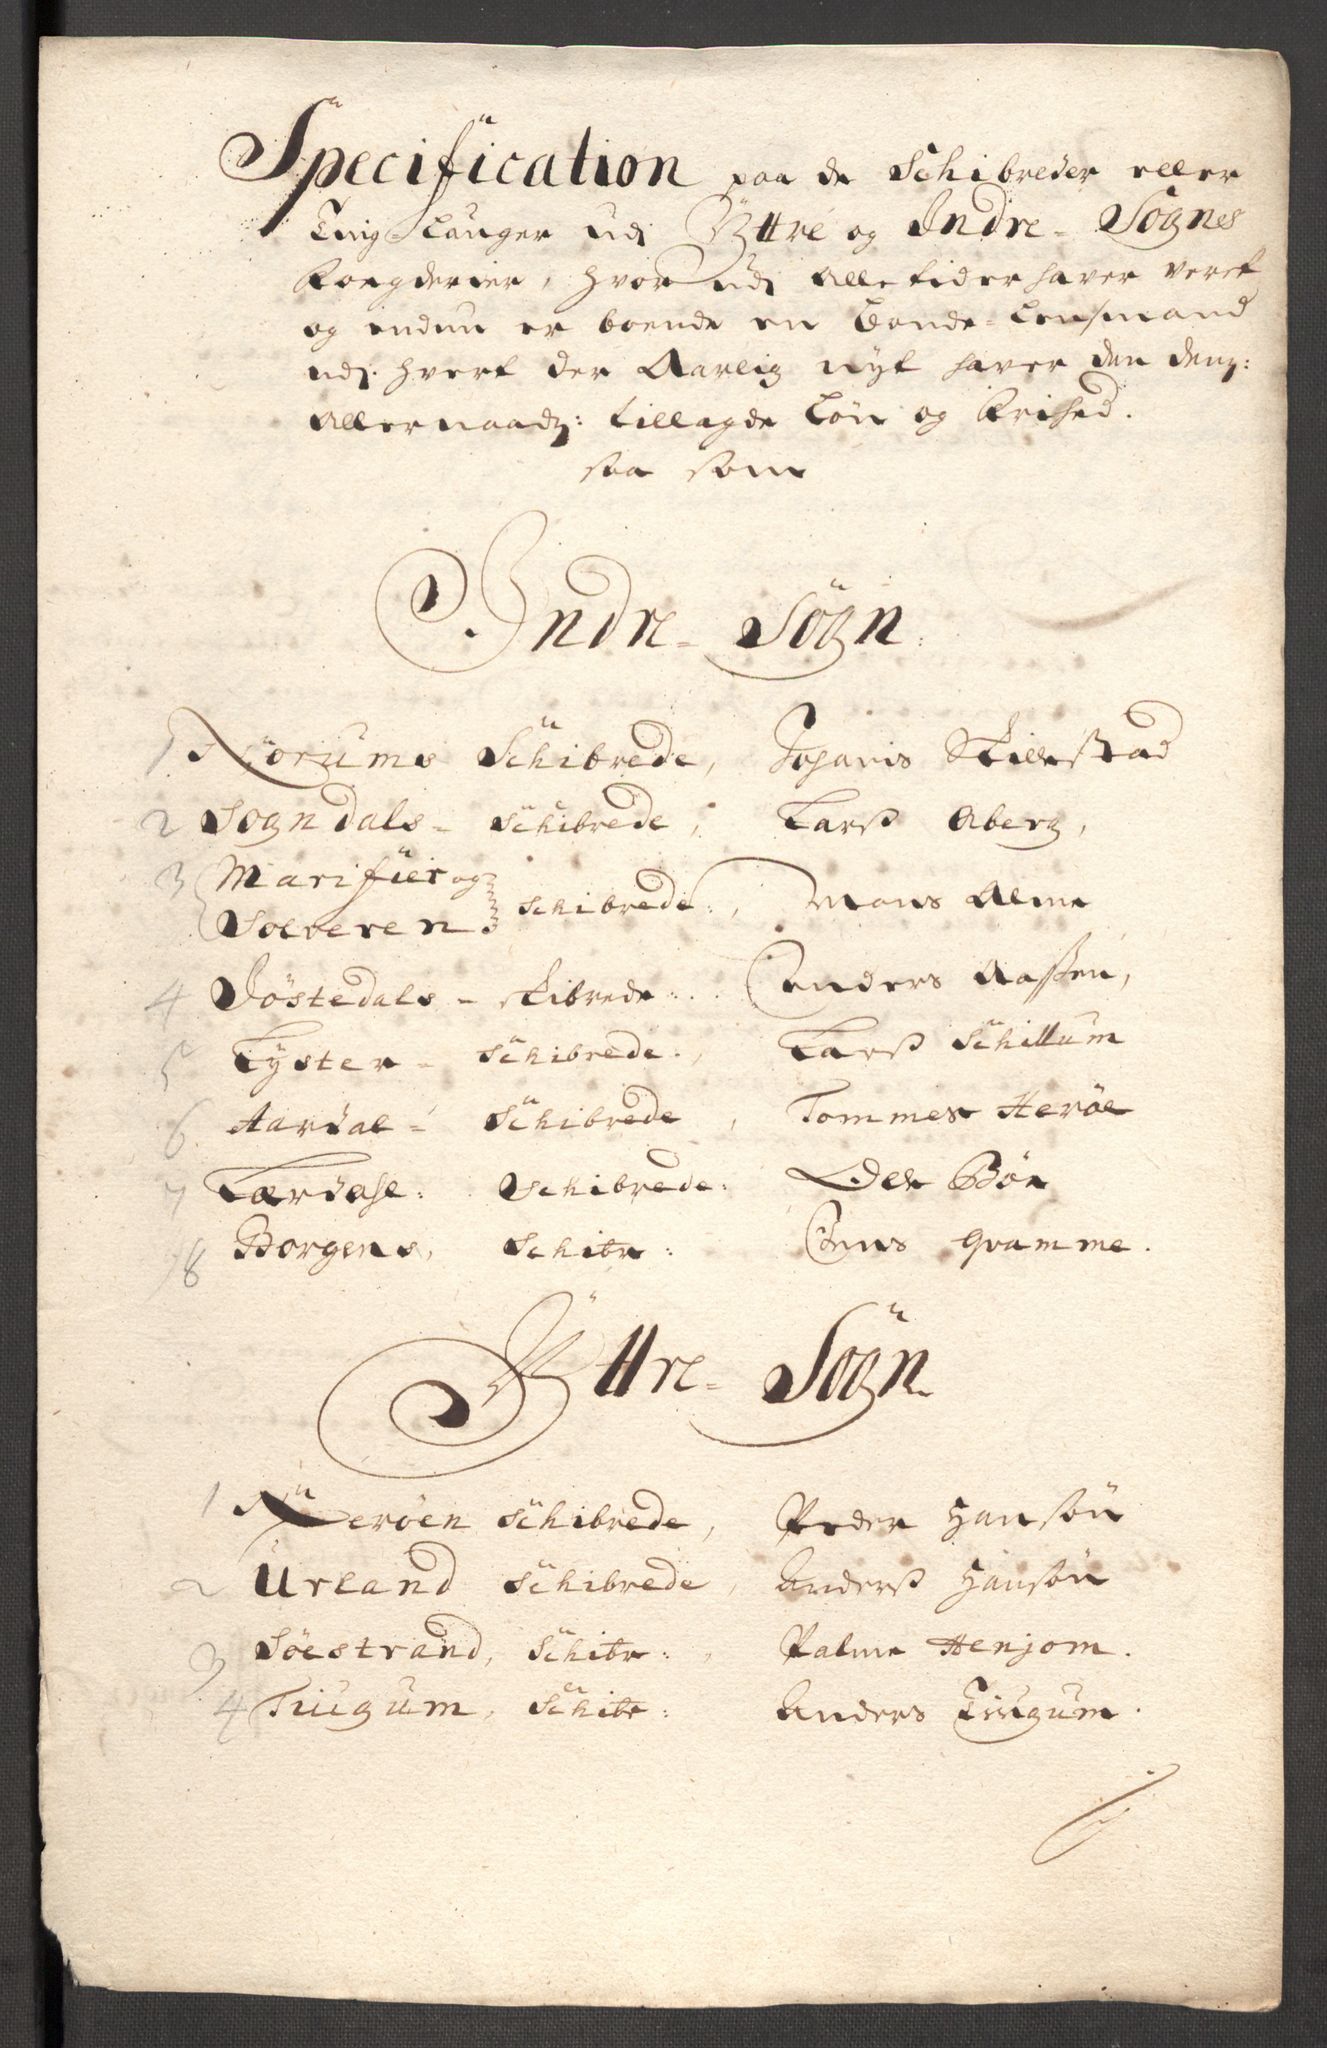 Specification paa de Schibreder eller
Ting-Lauger udj Ÿttre og Indre-Sognes
Fougderier, hvor udj Alle tider haver veret
og endnu er boende en Bonde-Lensmand
udj hvert der Aarlig nÿt haver den dem:
Allernaadg: tillagde Løn og Frihed.
saa som
Indre-Sogn.
1 Norums Schibrede, Johanis Stillestad
2 Sogndals-Schibrede, Larss Aberg,
3 Marifier og
Solvoren Schibrede:, Mons Alme
4 Jöstedals-skibrede:. Enders Aassen,
5 Lÿster-Schibrede., Larss Schillum
6 Aardal-Schibrede, Tommes Heröe
7 Lærdahl: Schibrede: Oele Böe
8 Borgens, Schibr: Jens Gramme.
Ÿttre-Sogn.
1 Neröen Schibrede, Peder Hansön
2 Urland Schibrede, Anderss Hansön
3 Söestrand, Schibr:, Palme Henjom.
4 Tiugum, Schibr: Anders Tiugum.